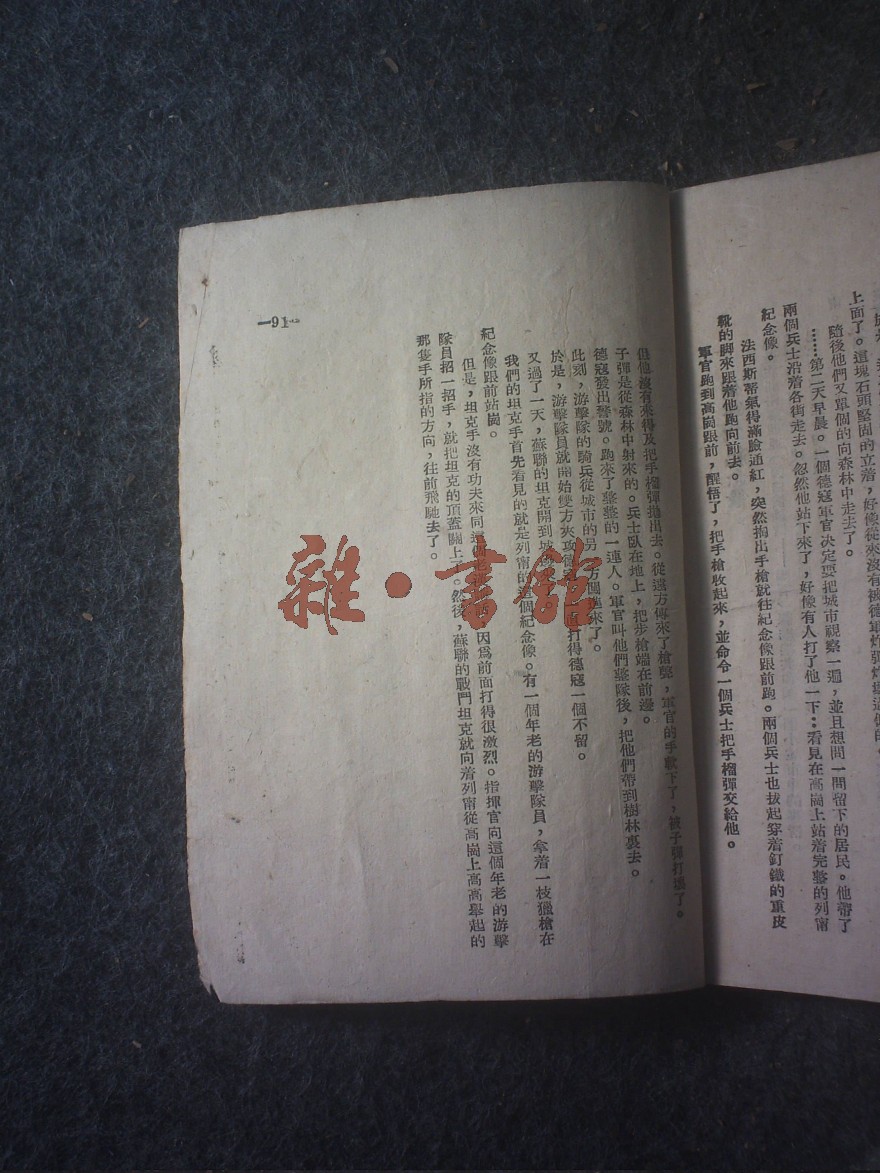 上面了。這塊石頭堅固的立着,好像從來沒有被德軍炸彈炸
隨後他們又單個的向森林中走去了。
……第二天早晨。一個德寇軍官决定要把城市視察一週,並且想問一問留下的居民。他帶了
兩個兵士沿着各街走去。忽然他站下來了,好像有人打了他一下:看見在高崗上站着完整的列甯
紀念像。
法西斯蒂氣得滿臉通紅,突然掏出手槍就往紀念像跟前跑。兩個兵士也拔起穿着釘鐵的重皮
靴的脚來跟着他跑向前去。
軍官跑到高崗跟前,醒悟了,把手槍收起來,並命令一個兵士把手榴彈交給他。
但他沒有來得及把手榴彈擲出去。從遠方傳來了槍聲,軍官的手軟下了,被子彈打壞了。
子彈是從森林中射來的。兵士臥在地上,把步槍端在前邊。
德寇發出警號。跑來了整整的一連人。軍官叫他們整隊後,把他們帶到樹林裏去。
此刻,游擊隊的騎兵從城市的另一方圍過來了。
於是,游擊隊員就開始雙方夾攻德寇,一直打得德寇一個不留。
又過了一天,蘇聯的坦克開到城
我們的坦克手首先看見的就是列甯的這個紀念像。有一個年老的游擊隊員,拿着一枝獵槍在
紀念像跟前站崗。
但是,坦克手沒有功夫來同這個老 因爲前面打得很激烈。指揮官向這個年老的游擊
隊員招一招手,就把坦克的頂蓋關上了。然後,蘇聯的戰鬥坦克就向着列甯從高崗上高高舉起的
那隻手所指的方向,往前飛馳去了。
—91—
雜·書館